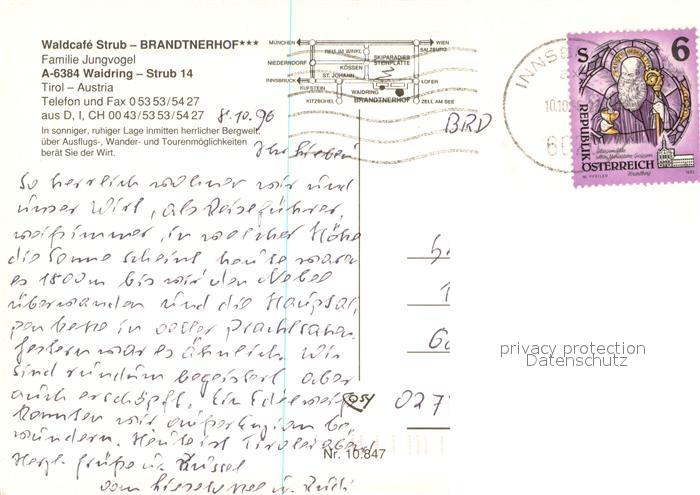 Waldcafé Strub – BRANDTNERHOF***
Familie Jungvogel
A-6384 Waidring – Strub 14
Tirol – Austria
Telefon und Fax 0 53 53 / 54 27
aus D, I, CH 00 43/53 53 / 54 27
In sonniger, ruhiger Lage inmitten herrlicher Bergwelt,
über Ausflugs-, Wander- und Tourenmöglichkeiten
berät Sie der Wirt.
MÜNCHEN
WIEN
SALZBURG
REIT IM WINKL
SKIPARADIES
STEINPLATTE
NIEDERNDORF
KÖSSEN
ST. JOHANN
INNSBRUCK
LOFER
KUFSTEIN
WAIDRING
KITZBÜHEL
BRANDTNERHOF
ZELL AM SEE
INNSB
10.10
S 6
REPUBLIK
ÖSTERREICH
8.10.96
BRD
Ihr Lieben
So herrlich wohnen wir und
unser Wirt, als Reiseführer,
weiß immer, in welcher Höhe
die Sonne scheint heute waren
es 1800m bis wir den Nebel
überwanden und die Haupt
in voller Pracht sahen.
Gestern war es ähnlich. Wir
sind rundum begeistert aber
auch erschöpft. Ein Edelweiß
konnten wir be-
wundern. Heute ist Tiroler Abend.
Herzl. Grüße u. Küssel
vom u. Rudi
027
Nr. 10.847
privacy protection
Datenschutz